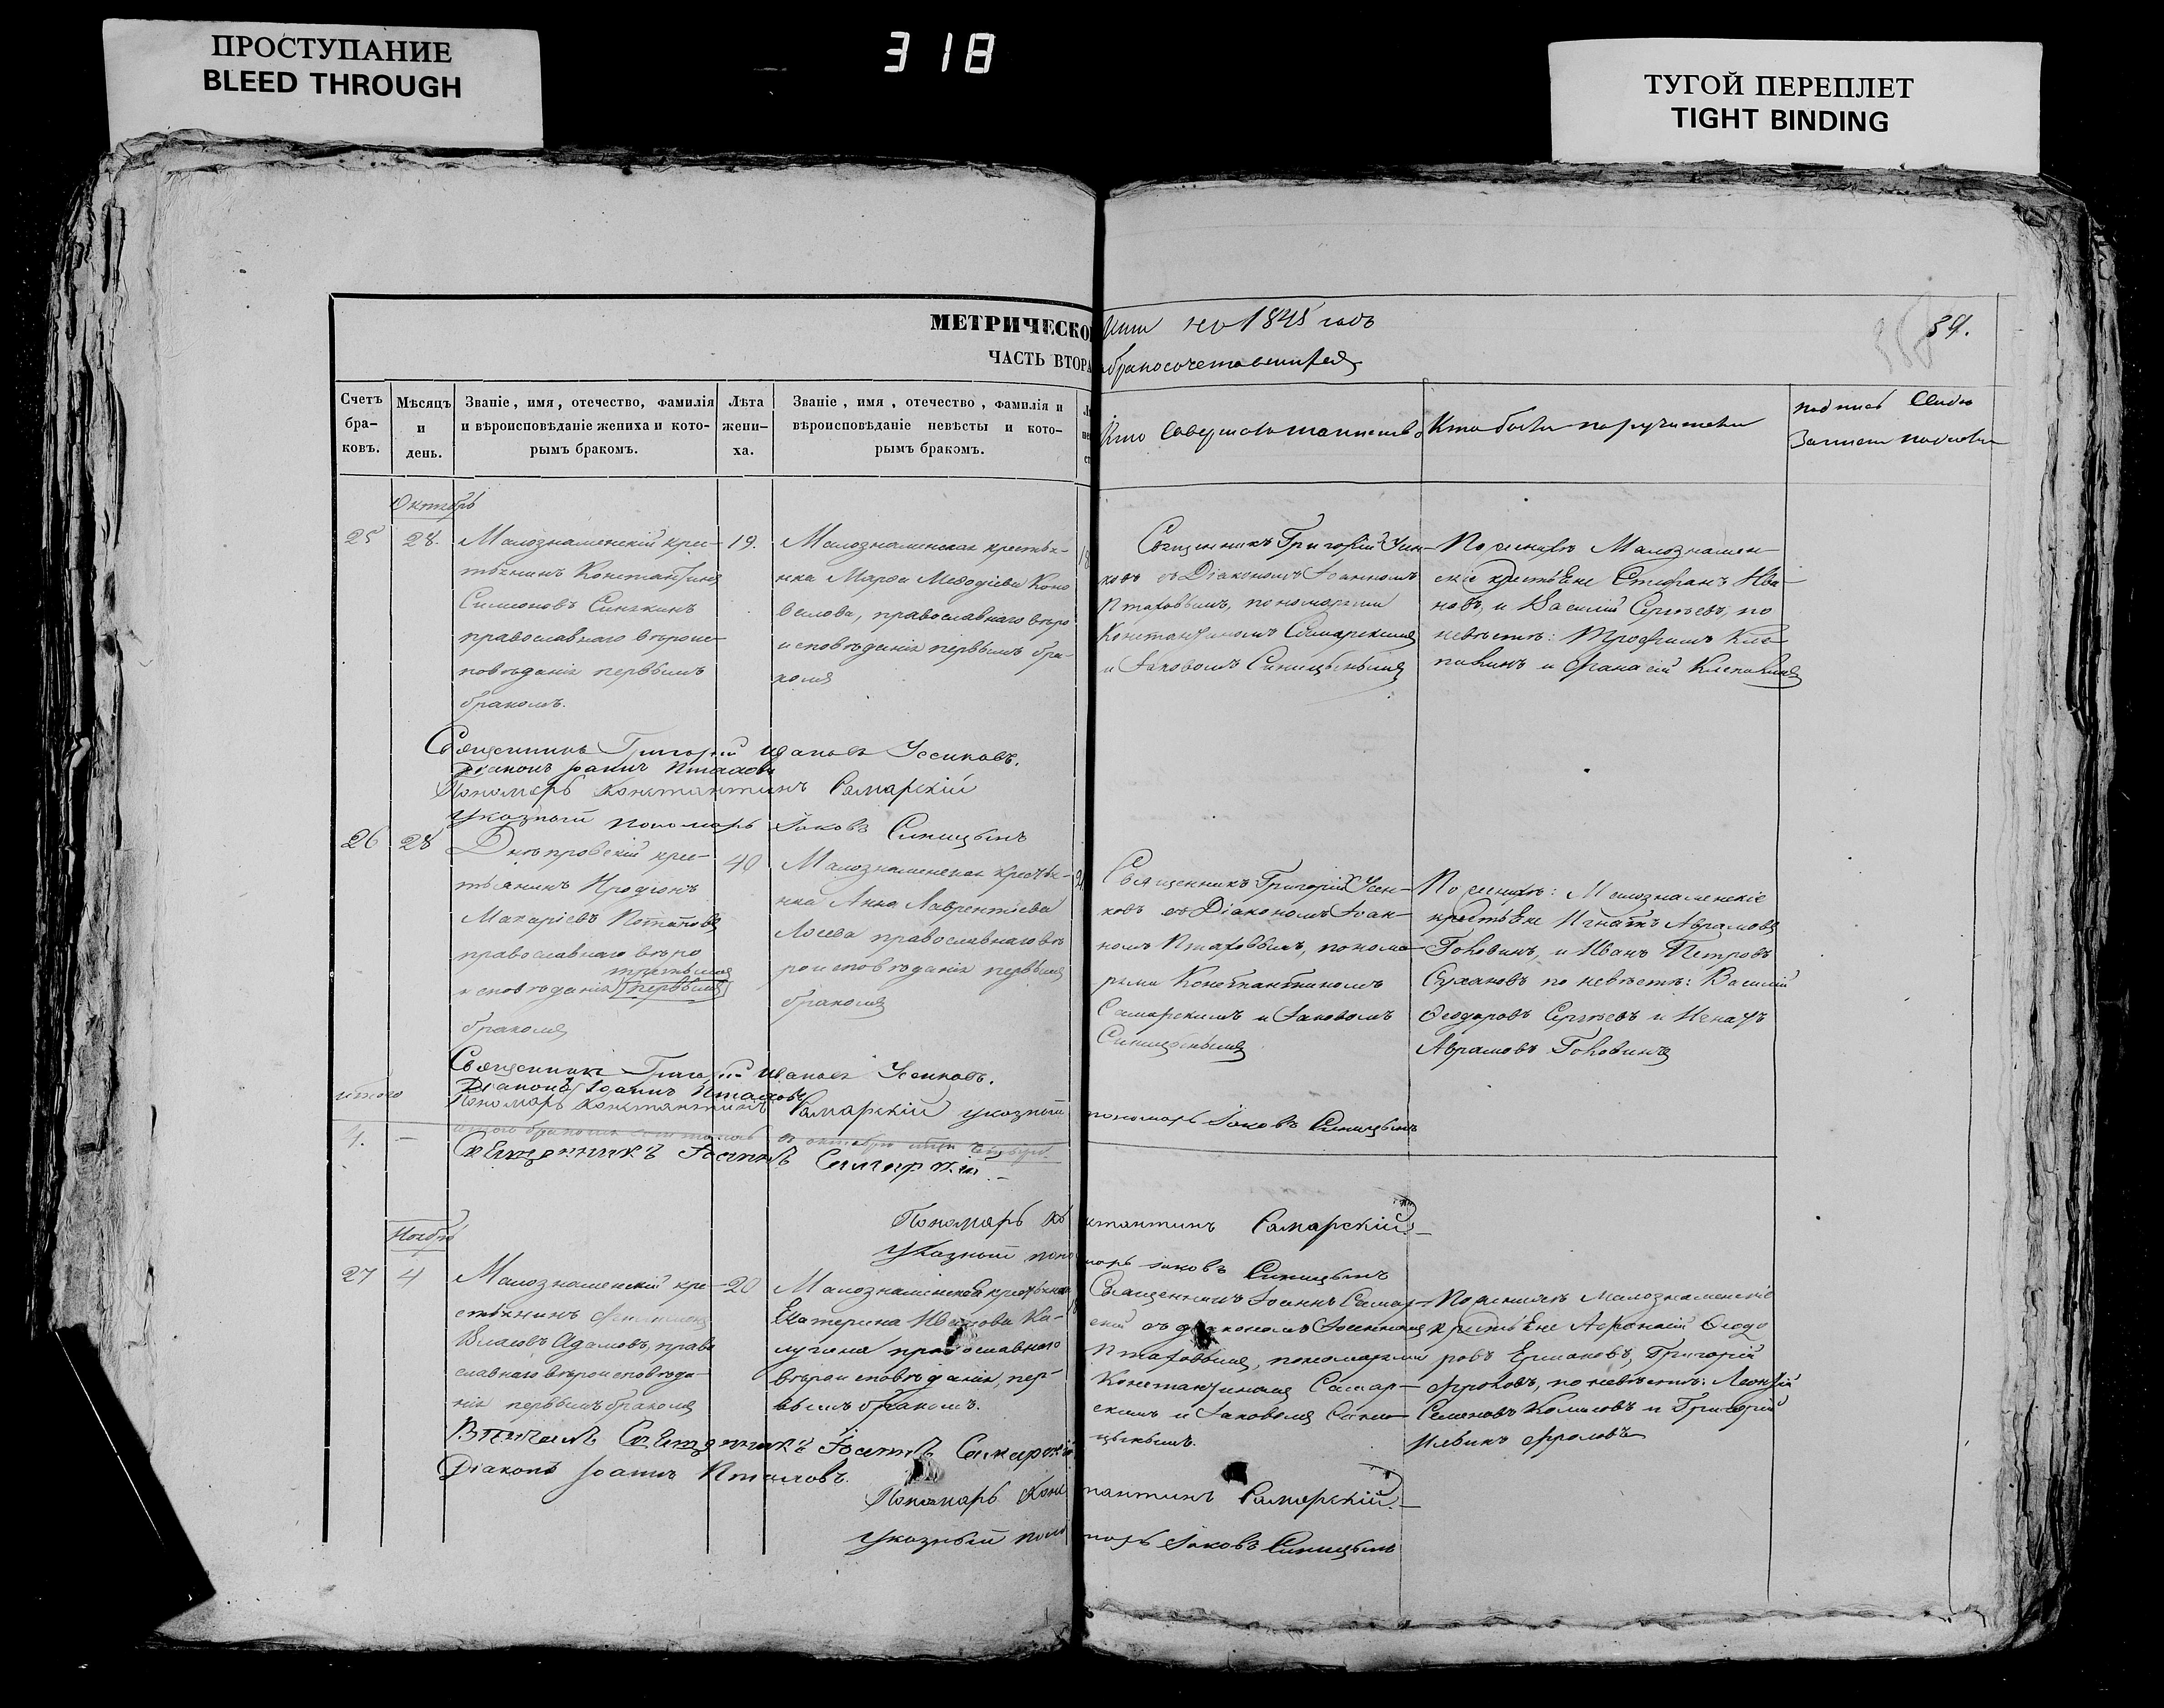 ПРОСТУПАНИЕ
BLEED THROUGH
318
ТУГОЙ ПЕРЕПЛЕТ
TIGHT BINDING
МЕТРИЧЕСКО
ниги на 1848 годъ
39.
ЧАСТЬ ВТОРА
бракосочетавшихся
Счетъ бра-ковъ.
Мѣсяцъ и день.
Званіе, имя, отечество, фамилія и вѣроисповѣданіе жениха и кото-рымъ бракомъ.
Лѣта жени-ха.
Званіе, имя, отечество, фамилія и вѣроисповѣданіе невѣсты и кото-рымъ бракомъ.
Кто совершалъ таинство
Кто были поручители
Октябрь
25
28.
Малознаменскій крес-
тьянинъ Константинъ
Симеоновъ Синякинъ
православнаго вѣроис-
повѣданія первымъ
бракомъ.
19.
Малознаменская крестья-
нка Марѳа Меѳодіева Коно
валова, православнаго вѣро
исповѣданія первымъ бра-
комъ
18
Священникъ Григорій Усен-
ковъ съ Діакономъ Іоанномъ
Птаховымъ, пономарями
Константиномъ Самарскимъ
и Іаковомъ Синицынымъ
По женихѣ Малознамен-
скіе крестьяне Стефанъ Ива-
новъ, и Василій Сергѣевъ, по
невѣстѣ: Трофимъ Кле-
пикинъ и Афанасій
Священникъ Григорій Ивановъ Усенковъ.
Діаконъ Іоаннъ Птаховъ
Пономарь Константинъ Самарскій
Указный пономарь Іаковъ Синицынъ
26
28
Днѣпровскій крес-
тьянинъ Иродіонъ
Макаріевъ Потаповъ
православнаго вѣро
третьимъ
исповѣданія первымъ
бракомъ
40
Малознаменская крестья-
нка Анна Лаврентіева
Лосева православнаго вѣ
роисповѣданія первымъ
бракомъ
Священникъ Григорій Усен-
ковъ съ Діакономъ Іоан-
номъ Птаховымъ, понома-
рями Константиномъ
Самарскимъ и Іаковомъ
Синицынымъ
По женихѣ: Малознаменскіе
крестьяне Игнатъ Авраамовъ
и Иванъ Петровъ
Сухановъ по невѣстѣ: Василій
Ѳеодоровъ Сергѣевъ и Игнатъ
Авраамовъ
Священникъ Григорій Ивановъ Усенковъ.
Діаконъ Іоаннъ Птаховъ
Пономарь Константинъ Самарскій указный пономарь Іаковъ Синицынъ
итого
4.
—
Священникъ Іоаннъ Самарскій.
Пономарь Константинъ Самарскій
Указный пономарь Іаковъ Синицынъ
Ноябрь
27
4
Малознаменскій кре-
стьянинъ
Власовъ Адамовъ, право
славнаго вѣроисповѣда-
нія первымъ бракомъ
20
Малознаменская крестьянка
Екатерина Иванова Ка-
лугина православнаго
вѣроисповѣданія, пер-
вымъ бракомъ.
Священникъ Іоаннъ Самар-
скій съ діакономъ Іоанномъ
Птаховымъ, пономарями
Константиномъ Самар-
скимъ и Іаковомъ Сини-
цынымъ.
По женихѣ Малознаменскіе
крестьяне Афанасій Ѳеодо
ровъ Ермаковъ, Григорій
Фроловъ, по невѣстѣ: Леонтій
Семеновъ и Григорій
Фроловъ
Вѣнчалъ Священникъ Іоаннъ Самарскій
Діаконъ Іоаннъ Птаховъ.
Пономарь Константинъ Самарскій.
Указный пономарь Іаковъ Синицынъ